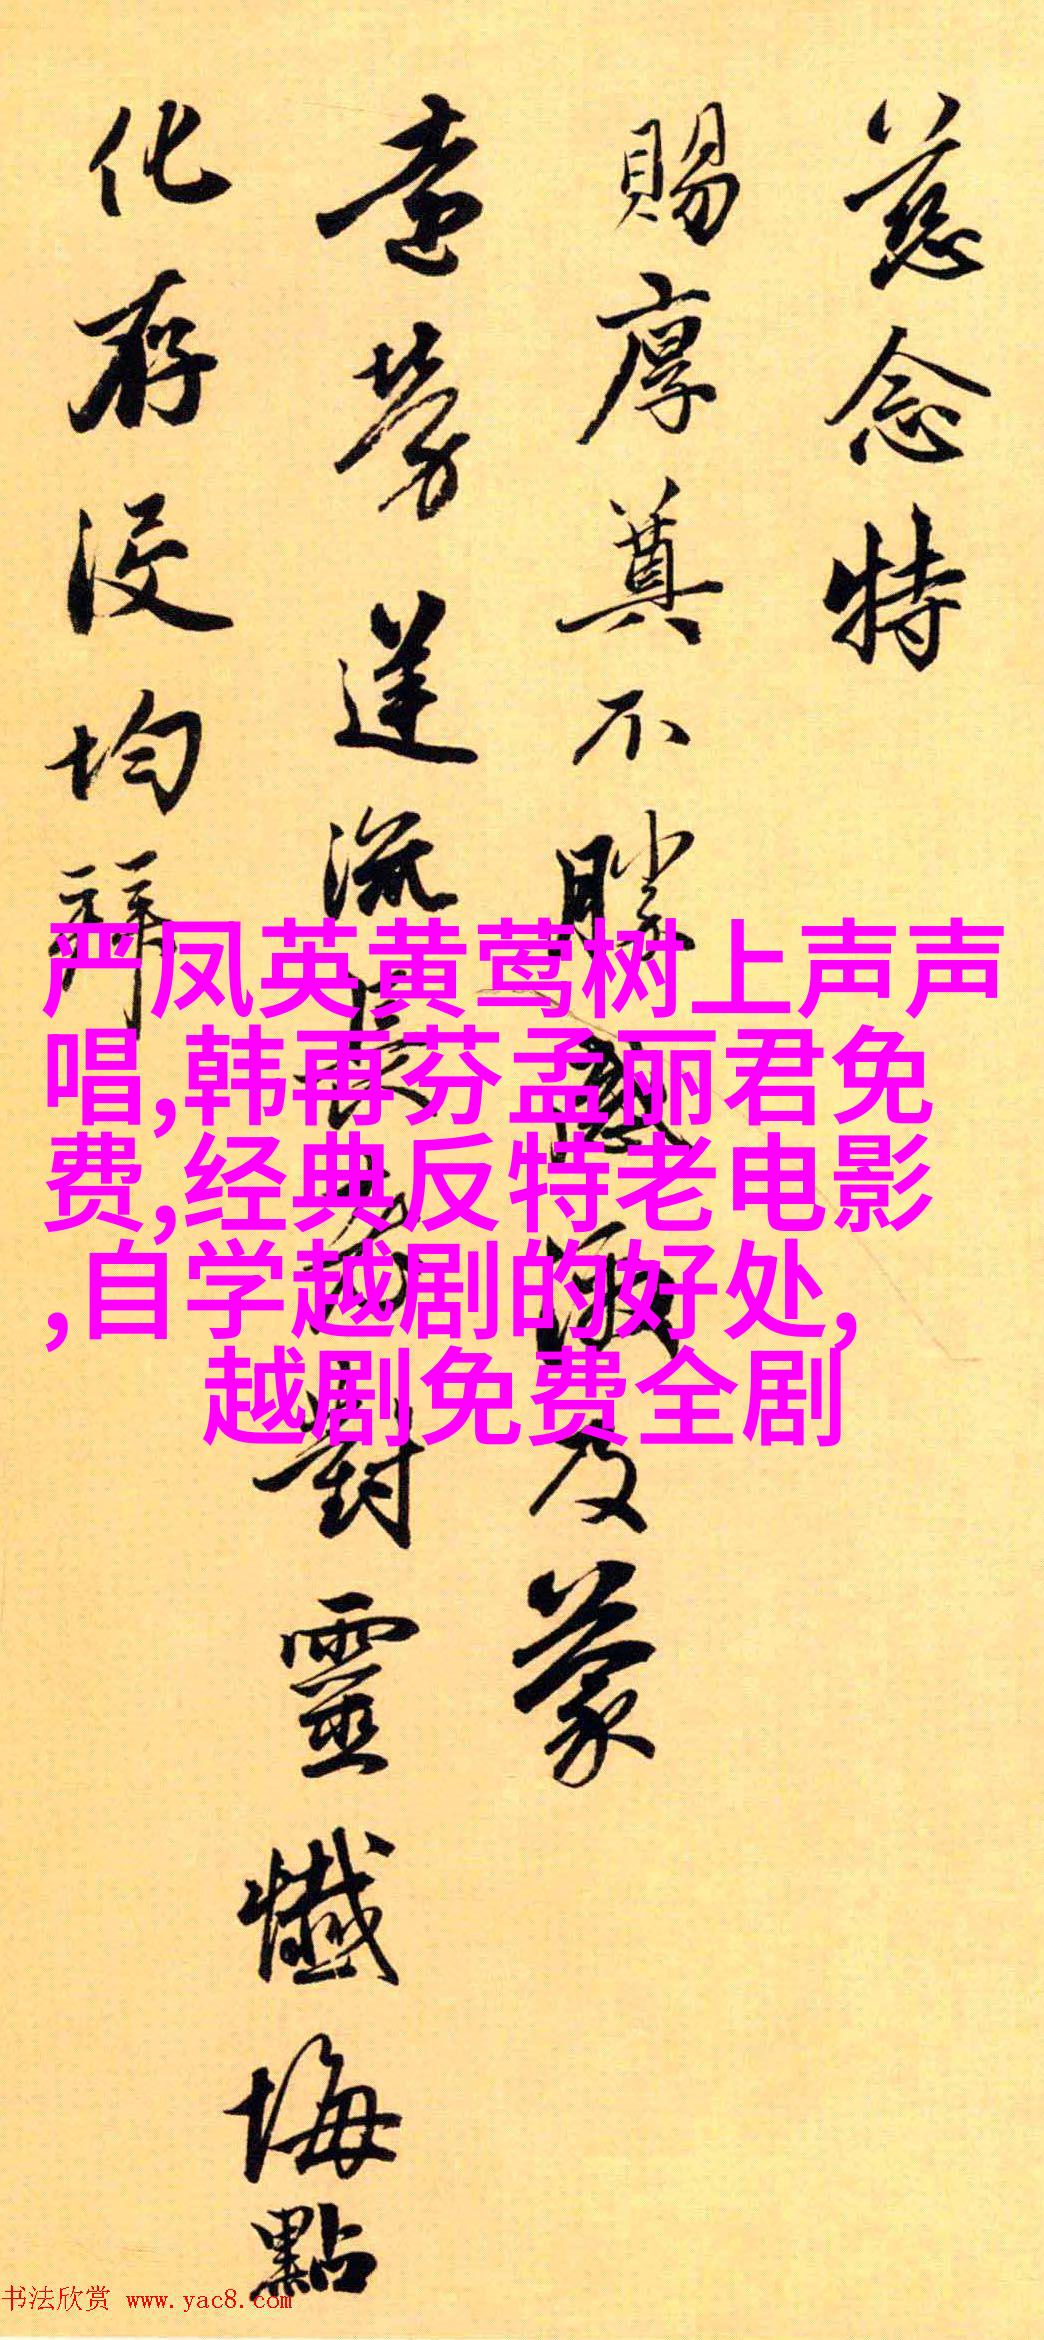 慈念特
賜厚奠不勝感激及蒙
遠勞蓬流長老對靈懺悔點
化存没均拜
严凤英黄莺树上声声
唱,韩再芬孟丽君免
费,经典反特老电影
,自学越剧的好处,
越剧免费全剧
书法欣赏 www.yac8.com